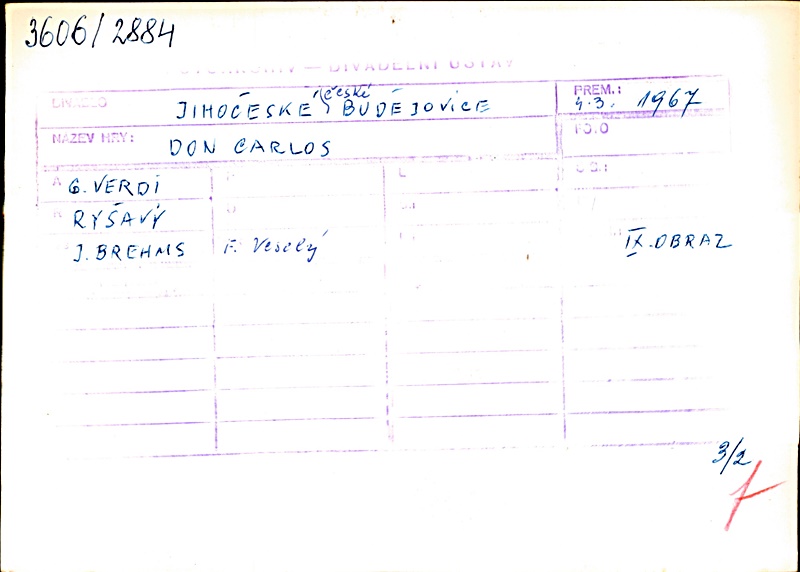 3606/2884
DIVADELNÍ ÚSTAV
DIVADLO JIHOČESKÉ, České BUDĚJOVICE PREM.: 4.3. 1967
NÁZEV HRY: DON CARLOS FO.O
A G. VERDI
R RYŠAVÝ
J. BREHMS F. Veselý IX. OBRAZ
3/2